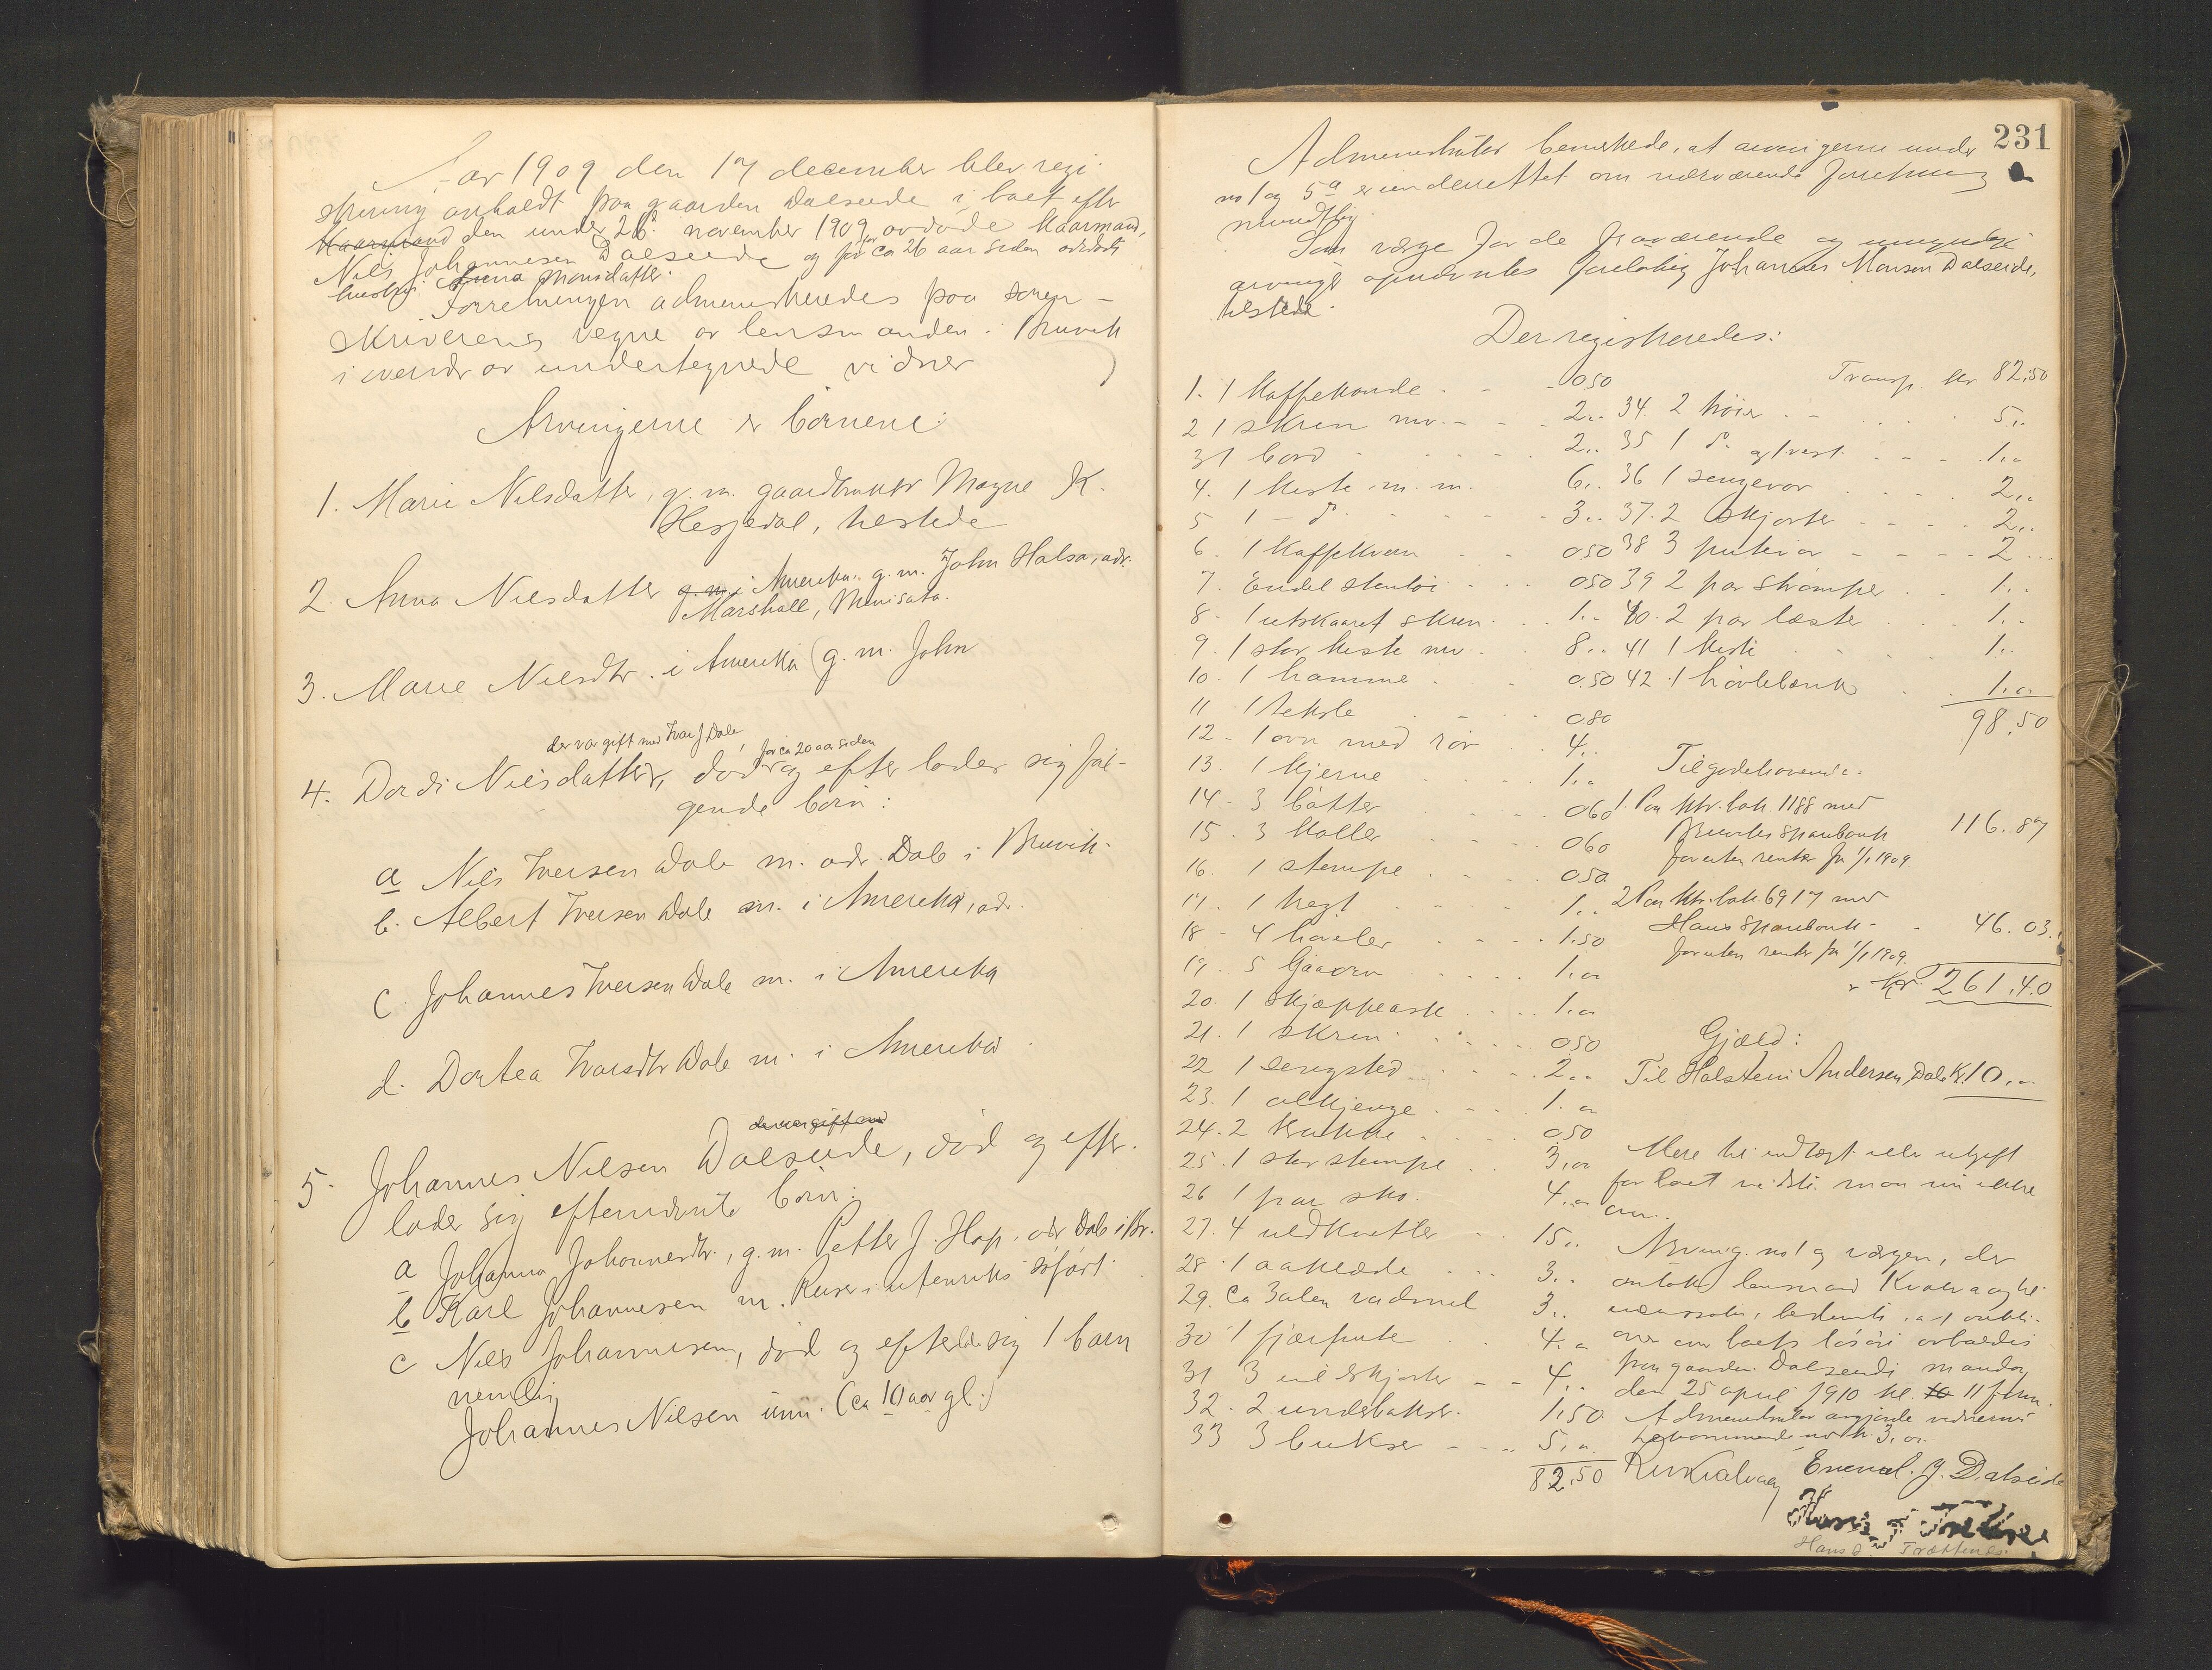 Aar 1909 den 17 december blev regi-
strering avholdt paa gaarden Dalseide i boet efter
Kaarmand den under 26de november 1909 avdøde kaarmand,
Nils Johannesen Dalseide og for ca 26 aar siden avdøde
hustru Anna Monsdatter.
Forretningen administreredes paa soren-
skriverens vegne av lensmanden i Bruvik
i overvær av undertegnede vidner
Arvingerne er børnene:
1. Marie Nilsdatter, g. m. gaardbruker Magne K.
Hesjedal, tilstede
2. Anna Nilsdatter g. m. i Amerika. g. m. John Halsa, adr.
Marshall, Minisota.
3. Marie Nilsdtr. i Amerika (g. m. John
der var gift med Ivar J. Dale, for ca 20 aar siden
4. Dordi Nilsdatter, død og efterlader sig føl-
gende børn:
a Nils Iversen Dale m. adr. Dale i Bruvik.
b. Albert Iversen Dale m. i Amerika, adr.
c. Johannes Iversen Dale m. i Amerika
d. Dortea Ivarsdtr Dale m. i Amerika
der var gift med
5. Johannes Nilsen Dalseide, død og efter-
lader sig efternævnte børn:
a Johanna Johannesdtr., g. m. Petter J. Hop, adr Dale i Br.
b Karl Johannesen m. Reiser i utenriks søfart.
c Nils Johannesen, død og efterlader sig 1 barn
nemlig
Johannes Nilsen um. (ca 10 aar gl.)
231
Administrator bemerkede, at arvingerne under
no 1 og 5a er underrettet om nærværende forretning
mundtlig.
Som værge for de fraværende og umyndige
arvinger opnævntes foreløbig Johannes Monsen Dalseide,
tilstede.
Der registreredes:
1. 1 kaffekande 0.50
2 1 skrin m.v. 2..
3 1 bord 2..
4. 1 kiste m. m. 6..
5 1 - do 3..
6. 1 kaffekvern 0.50
7. Endel stentøi 0.50
8. 1 utskaaret skrin 1..
9. 1 stor kiste m.v. 8..
10. 1 hammer 0.50
11 1 teksle 0.80
12. 1 ovn med rør 4..
13. 1 kjerne 1..
14. 3 bøtter 0.60
15. 3 koller 0.60
16. 1 stampe 0.50
17. 1 hegl 1..
18. 4 høvler 1.50
19. 5 ljaaorv 1..
20. 1 skjæppeask 1..
21. 1 skrin 0.50
22 1 sengsted 2..
23. 1 ølkjenge 1..
24. 2 krukke 0.50
25. 1 stor stampe 3..
26 1 par sko. 4..
27. 4 uldkufter 15..
28. 1 aaklæde 3..
29. Ca 3 alen vadmel 3..
30 1 fjærpute 4..
31 3 uldskjorter 4..
32. 2 underbukser. 1.50
33 3 bukser 5..
82.50
Transp. kr 82.50
34. 2 trøier 5..
35 1 do og 1 vest. 1..
36 1 sengevar 2..
37. 2 skjorter 2..
38 3 putevar 2..
39 2 par strømper 1..
40. 2 par læster 1..
41 1 kiste 1..
42. 1 høvlebænk 1..
98.50
Tilgodehavende.
1. Paa ktr. bok 1188 med
Bruviks sparebank 116.87
foruten renter fra 1/1 1909.
2 Paa ktr. bok. 6917 med
Haus sparebank 46.03.
foruten renter fra 1/1 1909.
kr. 261.40
Gjæld:
Til Halstein Andersen, Dale Kr. 10..
Mere til indtægt eller utgift
for boet vidste man nu ikke
om.
Arving no 1 og værgen, der
antok lensmand Kvalvaag til
bestemte, at auktion
over boets løsøre avholdes
paa gaarden Dalseide mandag
den 25 april 1910 kl. 10 11 form.
Administrator avgjorde vidnernes
tilkommende med kr. 3,00.
R Kvalvaag Enevald. J. Dalseide
Hans J Trættenes
Hans J. Trættenes.